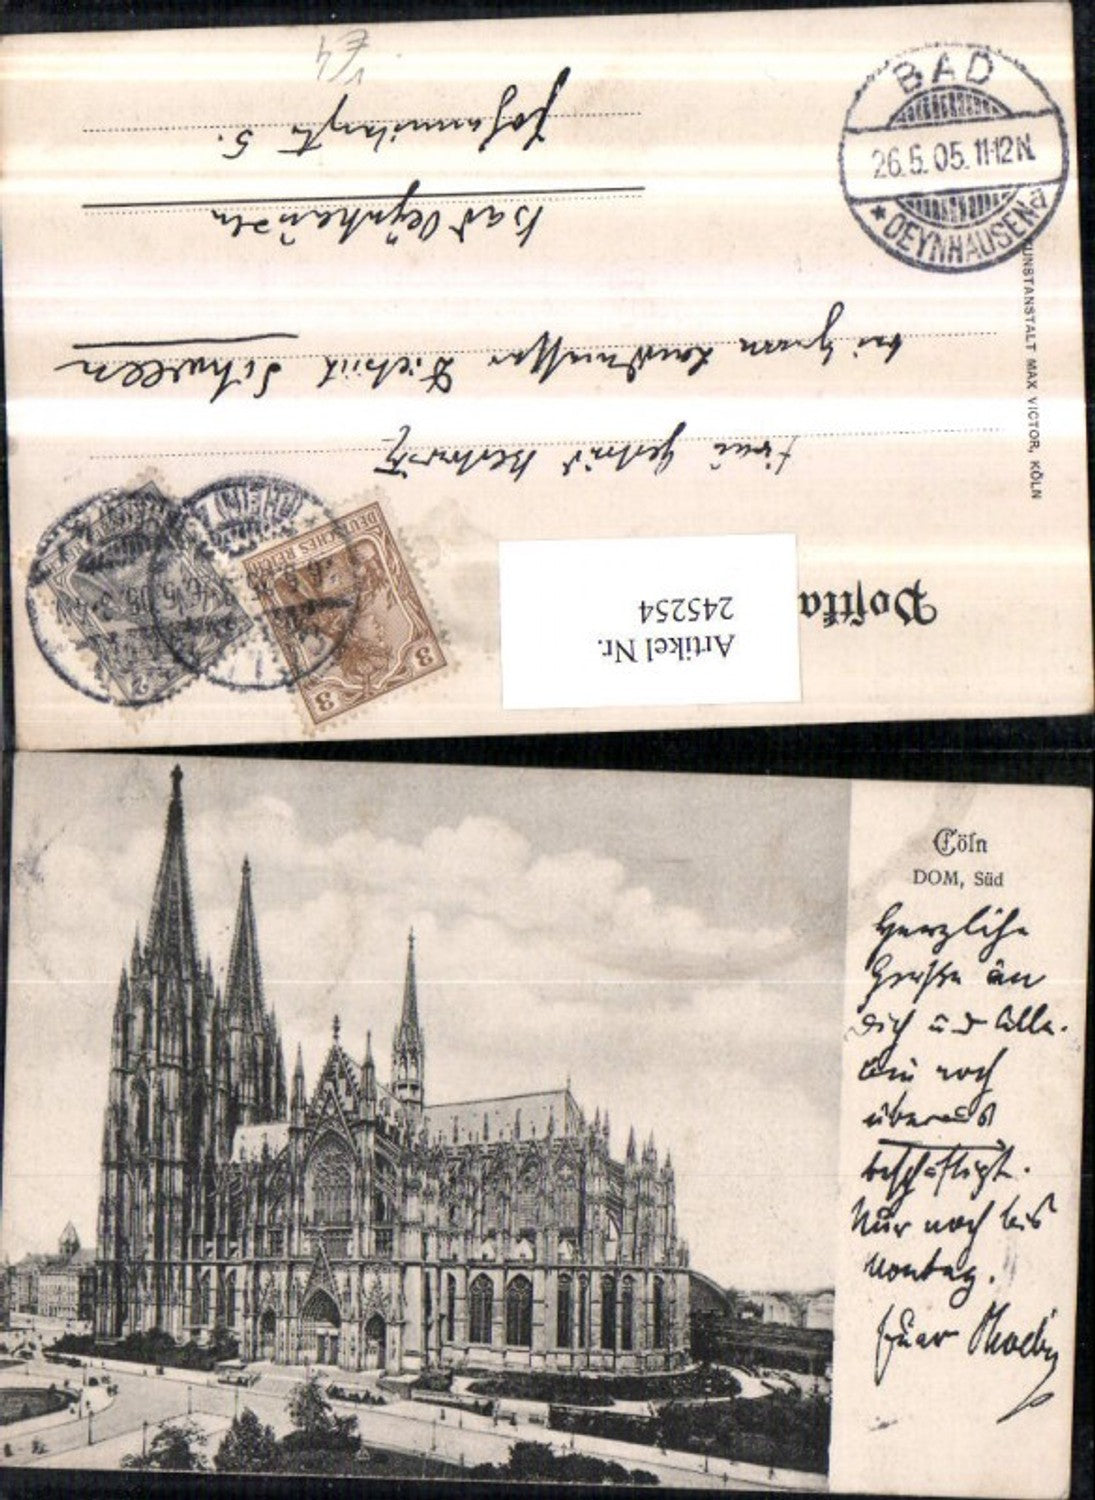 BAD
26.5.05. 11-12N.
* OEYNHAUSEN a
KUNSTANSTALT MAX VICTOR, KÖLN
Postka
Artikel Nr.
245254
DEUTSCHES REICH
3
3
2
(RHEIN)
Frau
bei Herrn Dietrich Schwellen
Bad Oeynhausen
5.
Cöln
DOM, Süd
Herzliche
Grüße an
Dich und Alle.
Bin noch
überaus
beschäftigt.
Nur noch bis
Montag.
Euer